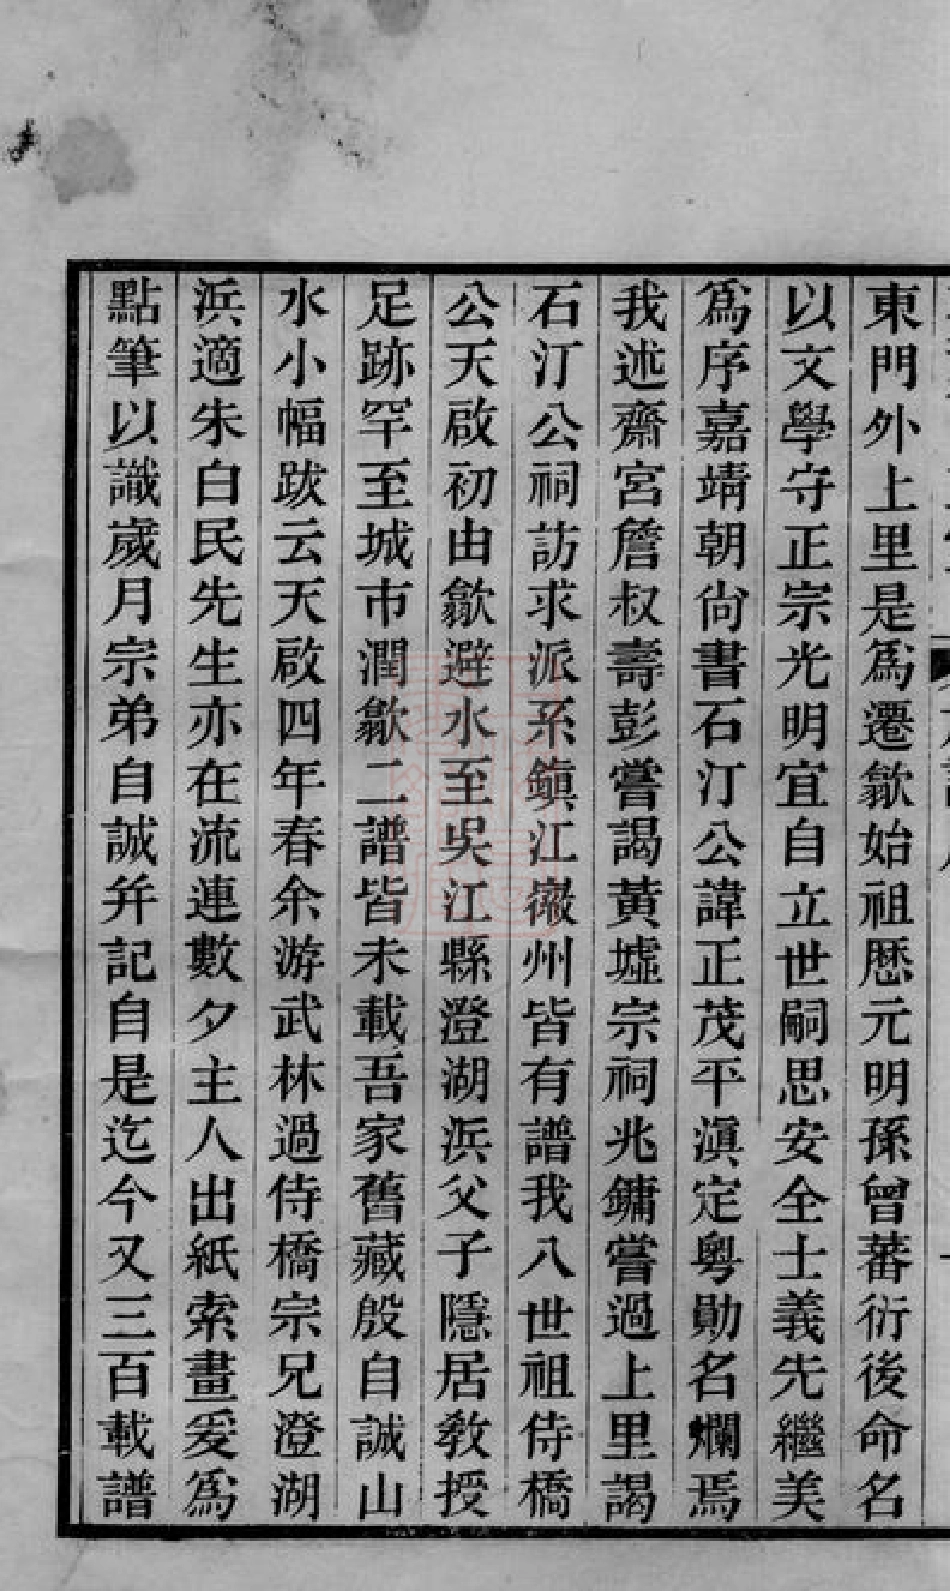 東門外上里是爲遷歙始祖歷元明孫曾蕃衍後命名
以文學守正宗光明宜自立世嗣思安全士義先繼美
爲序嘉靖朝尙書石汀公諱正茂平滇定粵勛名爛焉
我述齋宮詹叔壽彭嘗謁黃墟宗祠兆鏞嘗過上里謁
石汀公祠訪求派系鎭江徽州皆有譜我八世祖侍橋
公天啟初由歙避水至吳江縣澄湖浜父子隱居敎授
足跡罕至城市潤歙二譜皆未載吾家舊藏殷自誠山
水小幅跋云天啟四年春余游武林過侍橋宗兄澄湖
浜適朱白民先生亦在流連數夕主人出紙索畫爰爲
點筆以識歲月宗弟自誠幷記自是迄今又三百載譜